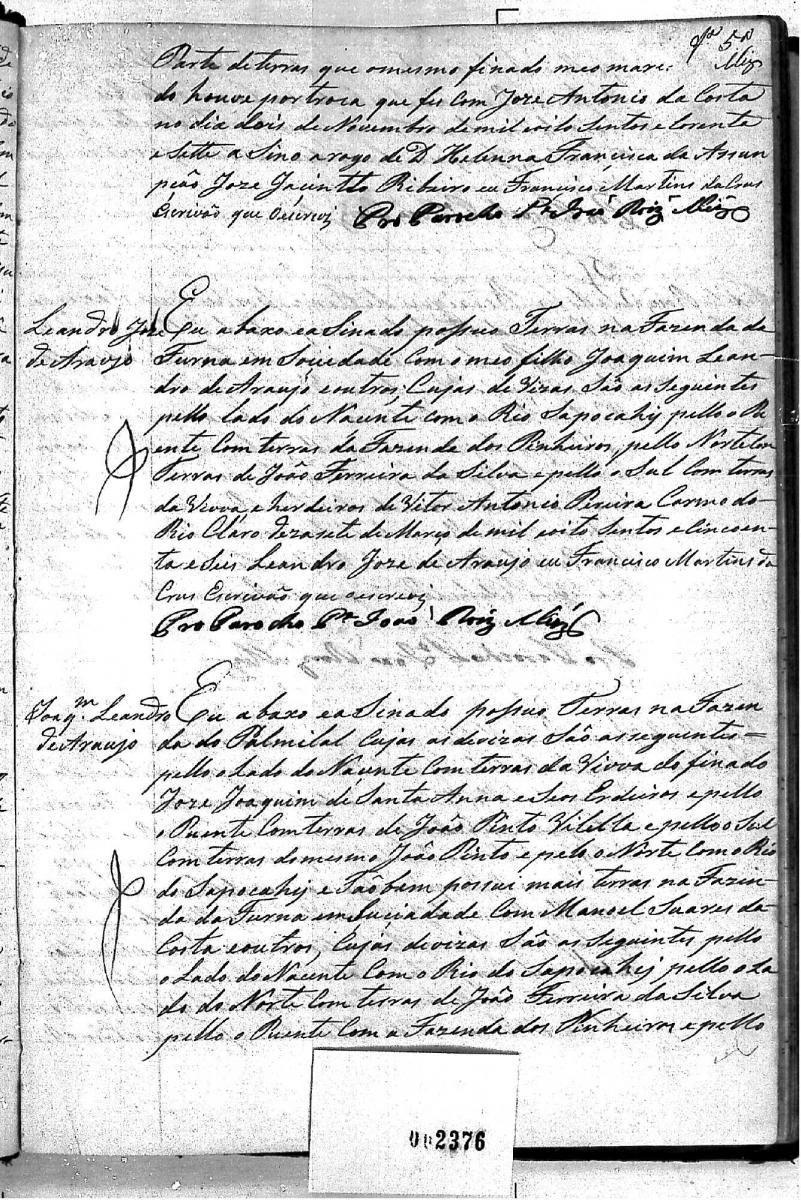 5
Parte de terras que o mesmo finado meo mari
do houve por troca que fes com Joze Antonio da Costa
no dia dois de Novembro de mil oito sentos e coranta
e sette a Sino arogo de D Helenna Francisca da Assun
pção Joze Jacintto Ribeiro eu Francisco Martins da Crus
Escrivão que o escrevi Pro Parocho
Leandro Joze
de Araujo
Eu abaxo ea Sinado possuo Terras na Fazenda da
Furna em Souedade com o meo filho Joaquim Lean-
dro de Araujo e outros, Cujas de Vizas São as Seguintes
pello lado do Nacente com o Rio Sapocahy, pello o Pu
ente Com terras da Fazenda dos Pinheiros, pello Norte com
Terras de João Ferreira da Silva e pello o Sul Com terras
da Viova, e herdeiros de Vitor Antonio Pereira Carmo do-
Rio Claro dezasete de Março de mil oito Sentos e Cincoen-
ta e Seis Leandro Joze de Araujo eu Francisco Martins da
Crus Escrivão que o escrevi
Pro Parocho Pe João Roiz
Joaqm Leandro
de Araujo
Eu abaxo ea Sinado possuo Terras na Fazen
da do Palmital Cujas as devizas São as seguentes=
pello o Lado do Nacente Com terras da Viova do finado
Joze Joaquim de Santa Anna e Seos Erdeiros e pello
o Puente Com terras de João Pinto Vilella e pello o Sul
Com terras do mesmo João Pinto e pelo o Norte Com o Rio
do Sapocahy e Tãobem possui mais terras na Fazen-
da da Furna em Suciadade Com Manoel Suares da
Costa e outros, Cujas devizas São as Seguintes pello
o Lado do Nacente Com o Rio do Sapocahy, pello o La
do do Norte Com terras de João Ferreira da Silva
pello o Puente Com a Fazenda dos Pinheiros e pello
002376